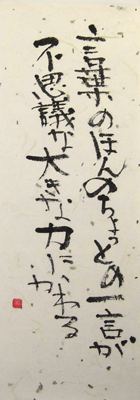 言葉のほんのちょっとの一言が
不思議な大きな力にかわる